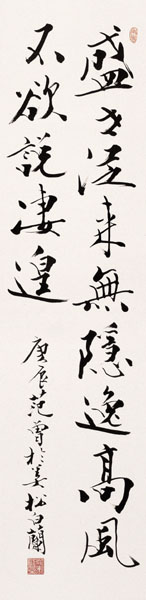 盛世從来無隱逸高風
不欲說凄遑
庚辰范曾於美松白蘭